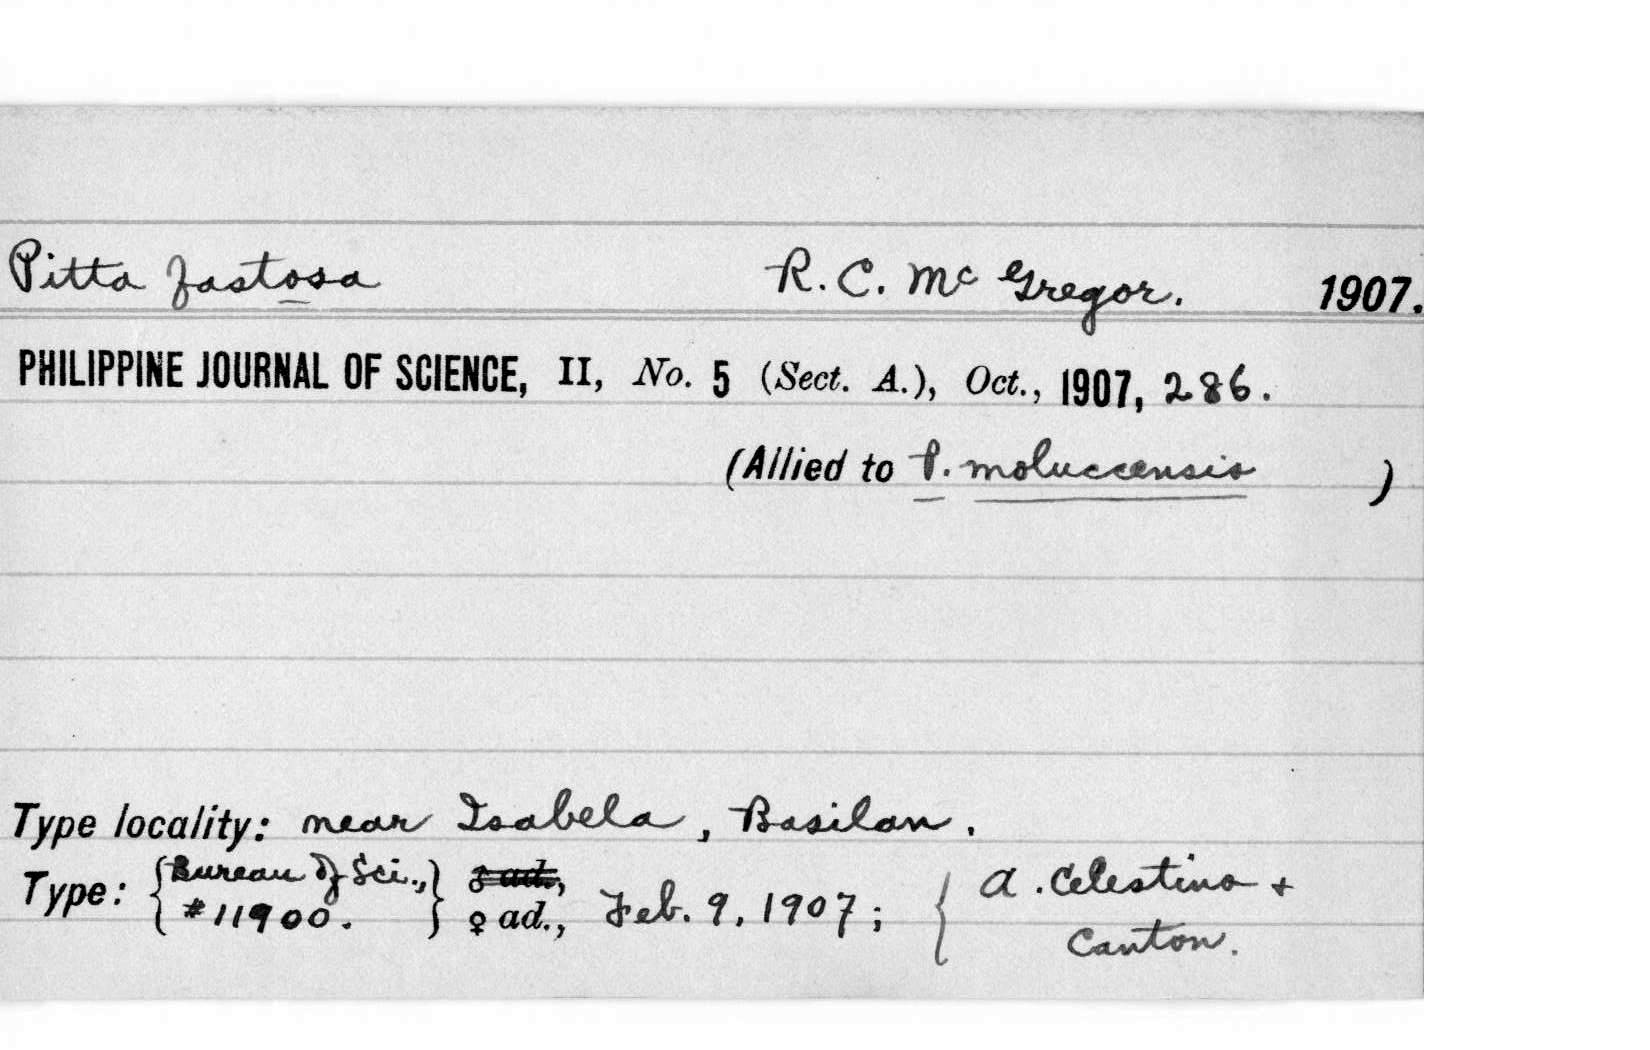 Pitta fastosa R. C. McGregor. 1907.
PHILIPPINE JOURNAL OF SCIENCE, II, No. 5 (Sect. A.), Oct., 1907, 286.
(Allied to P. moluccensis )
Type locality: near Isabela, Basilan.
Type: {Bureau of Sci., #11900.} ♂ ad., ♀ ad., Feb. 9, 1907; { A. Celestino + Canton.